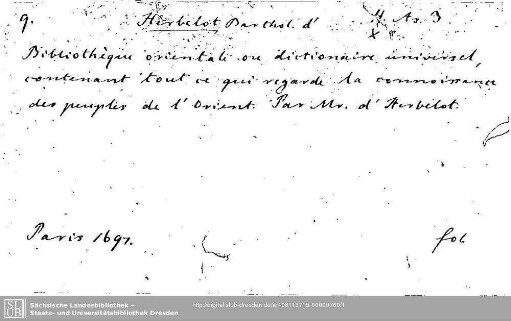 9. Herbelot Barthol. d' As. 3
Bibliothèque orientale ou dictionaire universel,
contenant tout ce qui regarde la connoissance
des peuples de l'Orient. Par Mr. d'Herbelot.
Paris 1697. fol
SLUB
Sächsische Landesbibliothek –
Staats- und Universitätsbibliothek Dresden